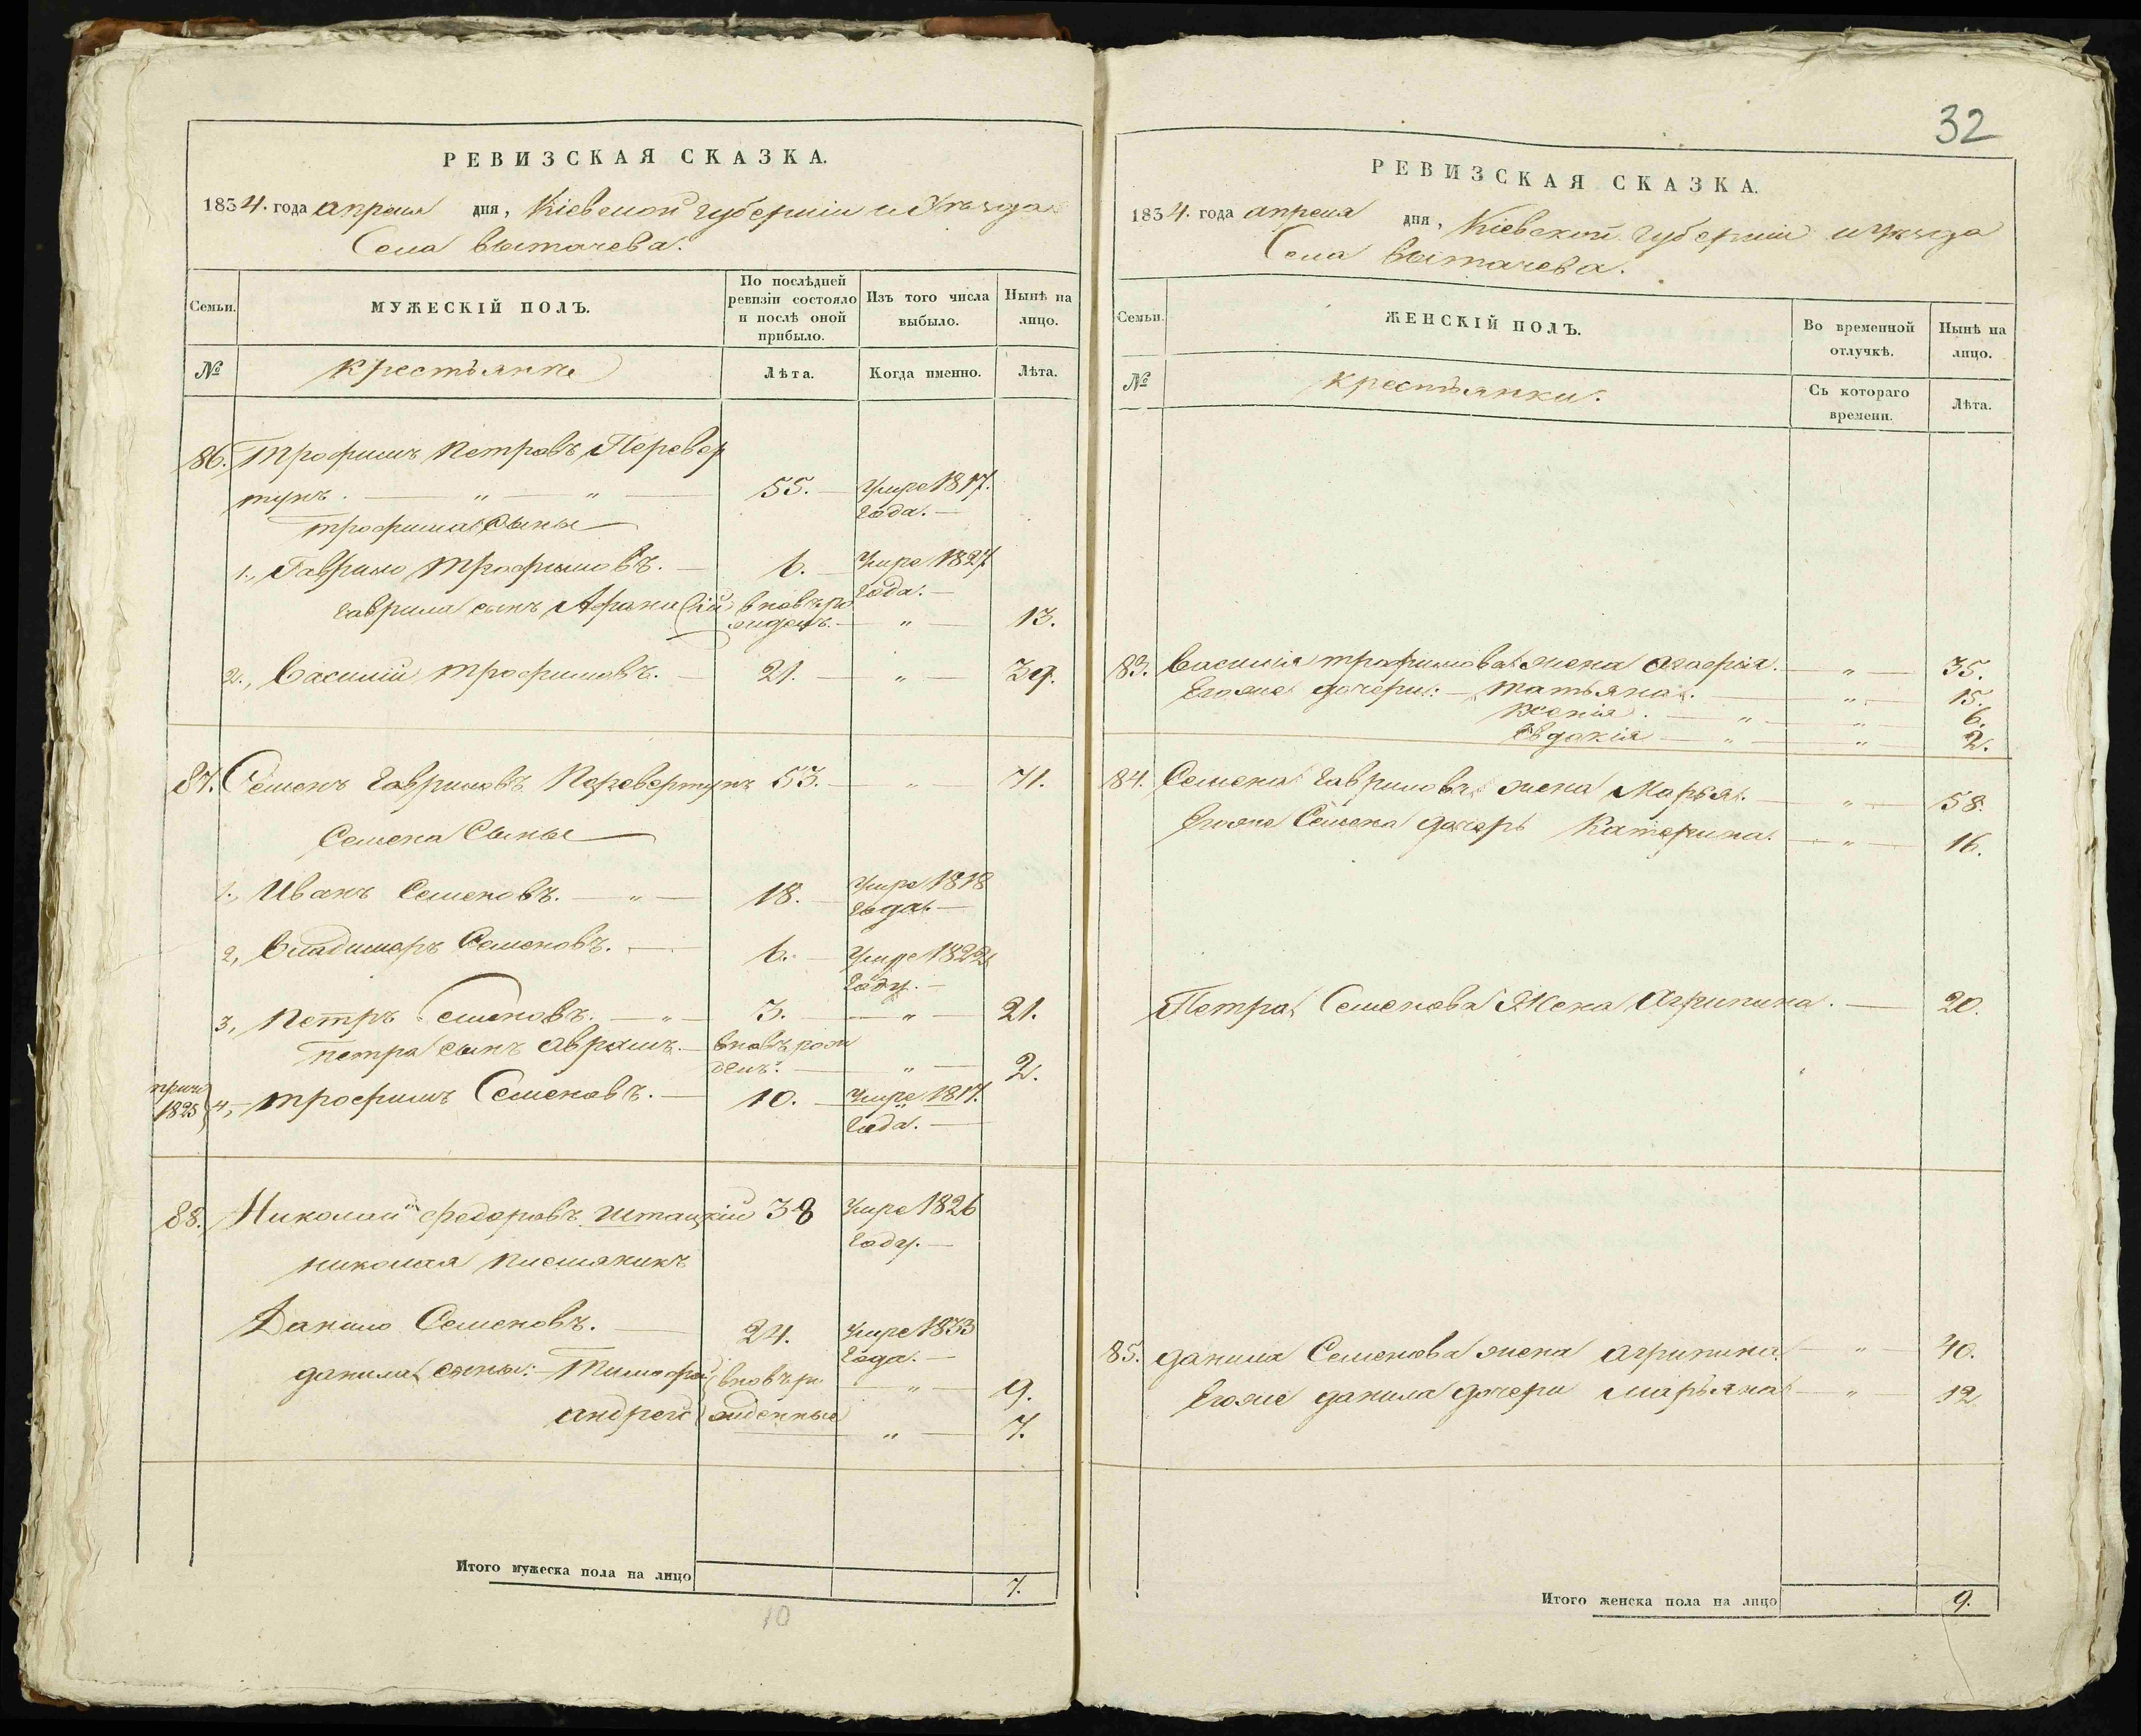 РЕВИЗСКАЯ СКАЗКА.
1834. года апреля дня, Кіевской губерніи и Уѣзда
Села Вытачева.
Семьи.
МУЖЕСКІЙ ПОЛЪ.
По послѣдней ревизіи состояло и послѣ оной прибыло.
Изъ того числа выбыло.
Нынѣ на лицо.
№
крестьяне
Лѣта.
Когда именно.
Лѣта.
86. Трофимъ Петровъ Перевер
тунъ. — " — " — 55. — Умре 1817.
года. —
Трофима Сыны
1., Гаврило Трофимовъ. — 6. — Умре 1827
года. —
Гаврила сынъ Афанасій вновъ ро
жденъ. — " — 13.
2., Василій Трофимовъ. — 21. — " — 39.
87. Семенъ Гавриловъ Перевертунъ 53. — " — 71.
Семена Сыны
1., Иванъ Семеновъ. — " — 18. — Умре 1818
года. —
2, Владимеръ Семеновъ. — 6. — Умре 1822
году. —
3, Петръ Семеновъ. — " — 3. — " — 21.
Петра сынъ Аврамъ. — вновъ рож
денъ. — " — 2.
1825 4, Трофимъ Семеновъ. — 10. — Умре 1817.
года. —
88. Николай Федоровъ Штацкій 38 Умре 1826
году. —
Николая
Данило Семеновъ. — 24. Умре 1833
года. —
Данила сыны: — Тимофей вновъ ро — " — 9.
Андрей жденные — " — 7.
Итого мужеска пола на лицо 7.
10
32
РЕВИЗСКАЯ СКАЗКА.
1834. года апреля дня, Кіевской Губерніи и Уѣзда
Села Вытачева.
Семьи.
ЖЕНСКІЙ ПОЛЪ.
Во временной отлучкѣ.
Нынѣ на лицо.
№
крестьянки.
Съ котораго времени.
Лѣта.
83. Василія Трофимова жена Агафія. — " — 35.
Егоже дочери: — Татьяна. — " — 15.
Ксенія. — " — " — 6.
Евдокія — " — " — 2.
84. Семена Гаврилова жена Марья. — " — 58.
Егоже Семена дочерь Катерина. — " — 16.
Петра Семенова Жена Агрипина. — 20.
85. Данила Семенова жена Агрипина — " — 40.
Егоже Данила дочери Марьяна — " — 12
Итого женска пола на лицо 9.